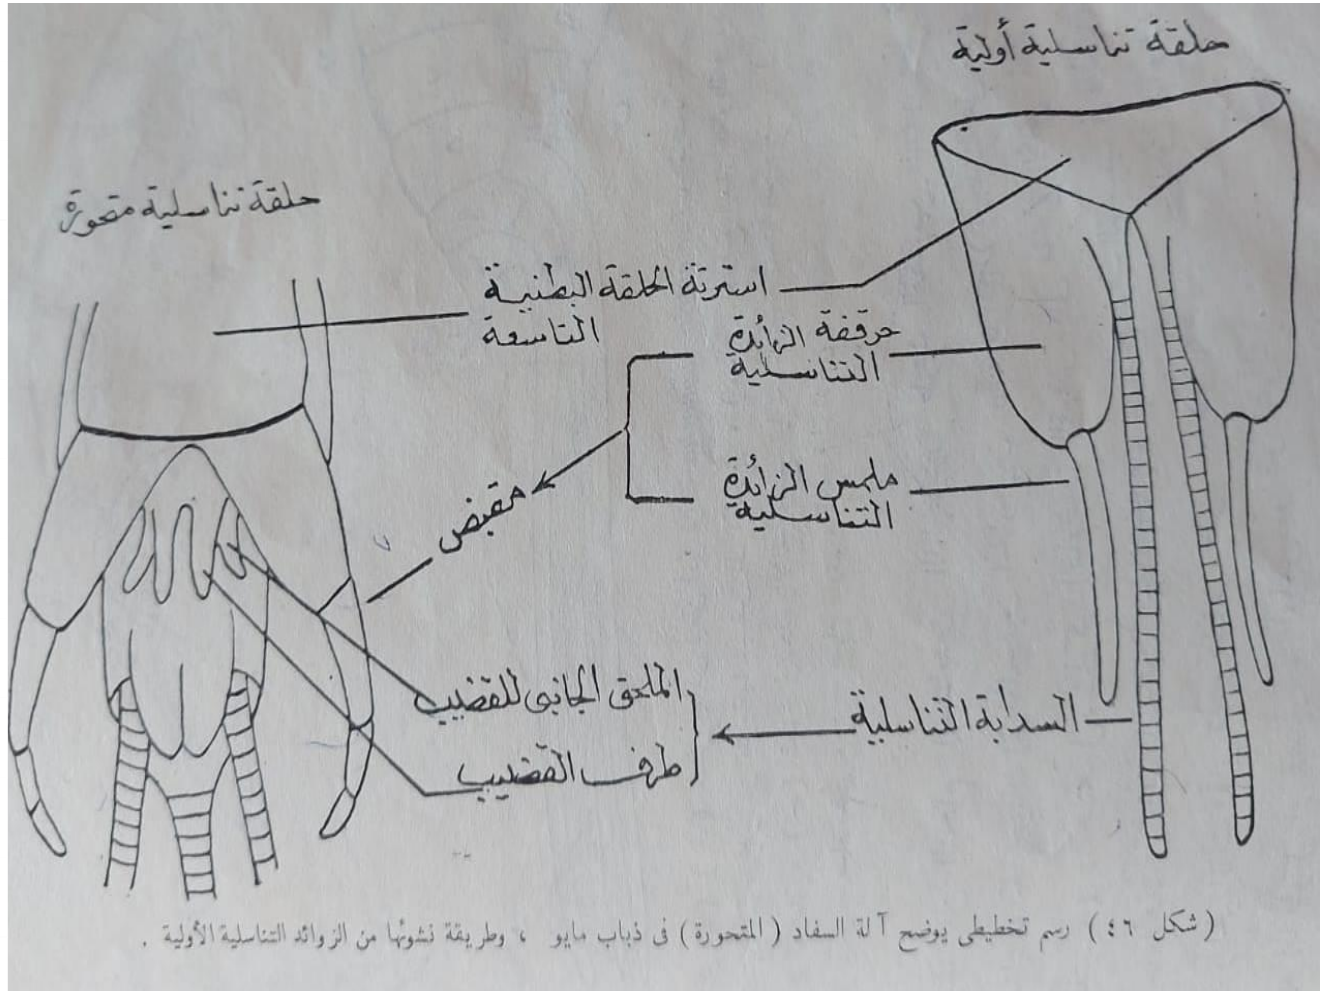 حلقة تناسلية أولية
حلقة تناسلية متحورة
استرنة الحلقة البطنية
التاسعة
حرقفة الزائدة
التناسلية
ملمس الزائدة
التناسلية
مقبض
الملحق الجانبى للقضيب
السدابة التناسلية
طرف القضيب
(شكل ٤٦) رسم تخطيطى يوضح آلة السفاد (المتحورة) فى ذباب مايو ، وطريقة نشوئها من الزوائد التناسلية الأولية .